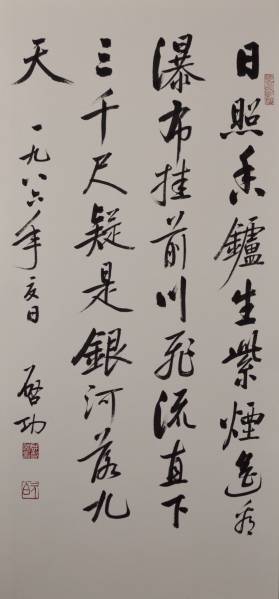 日照香鑪生紫煙遙看
瀑布挂前川飛流直下
三千尺疑是銀河落九
天
一九八六年夏日
啓功